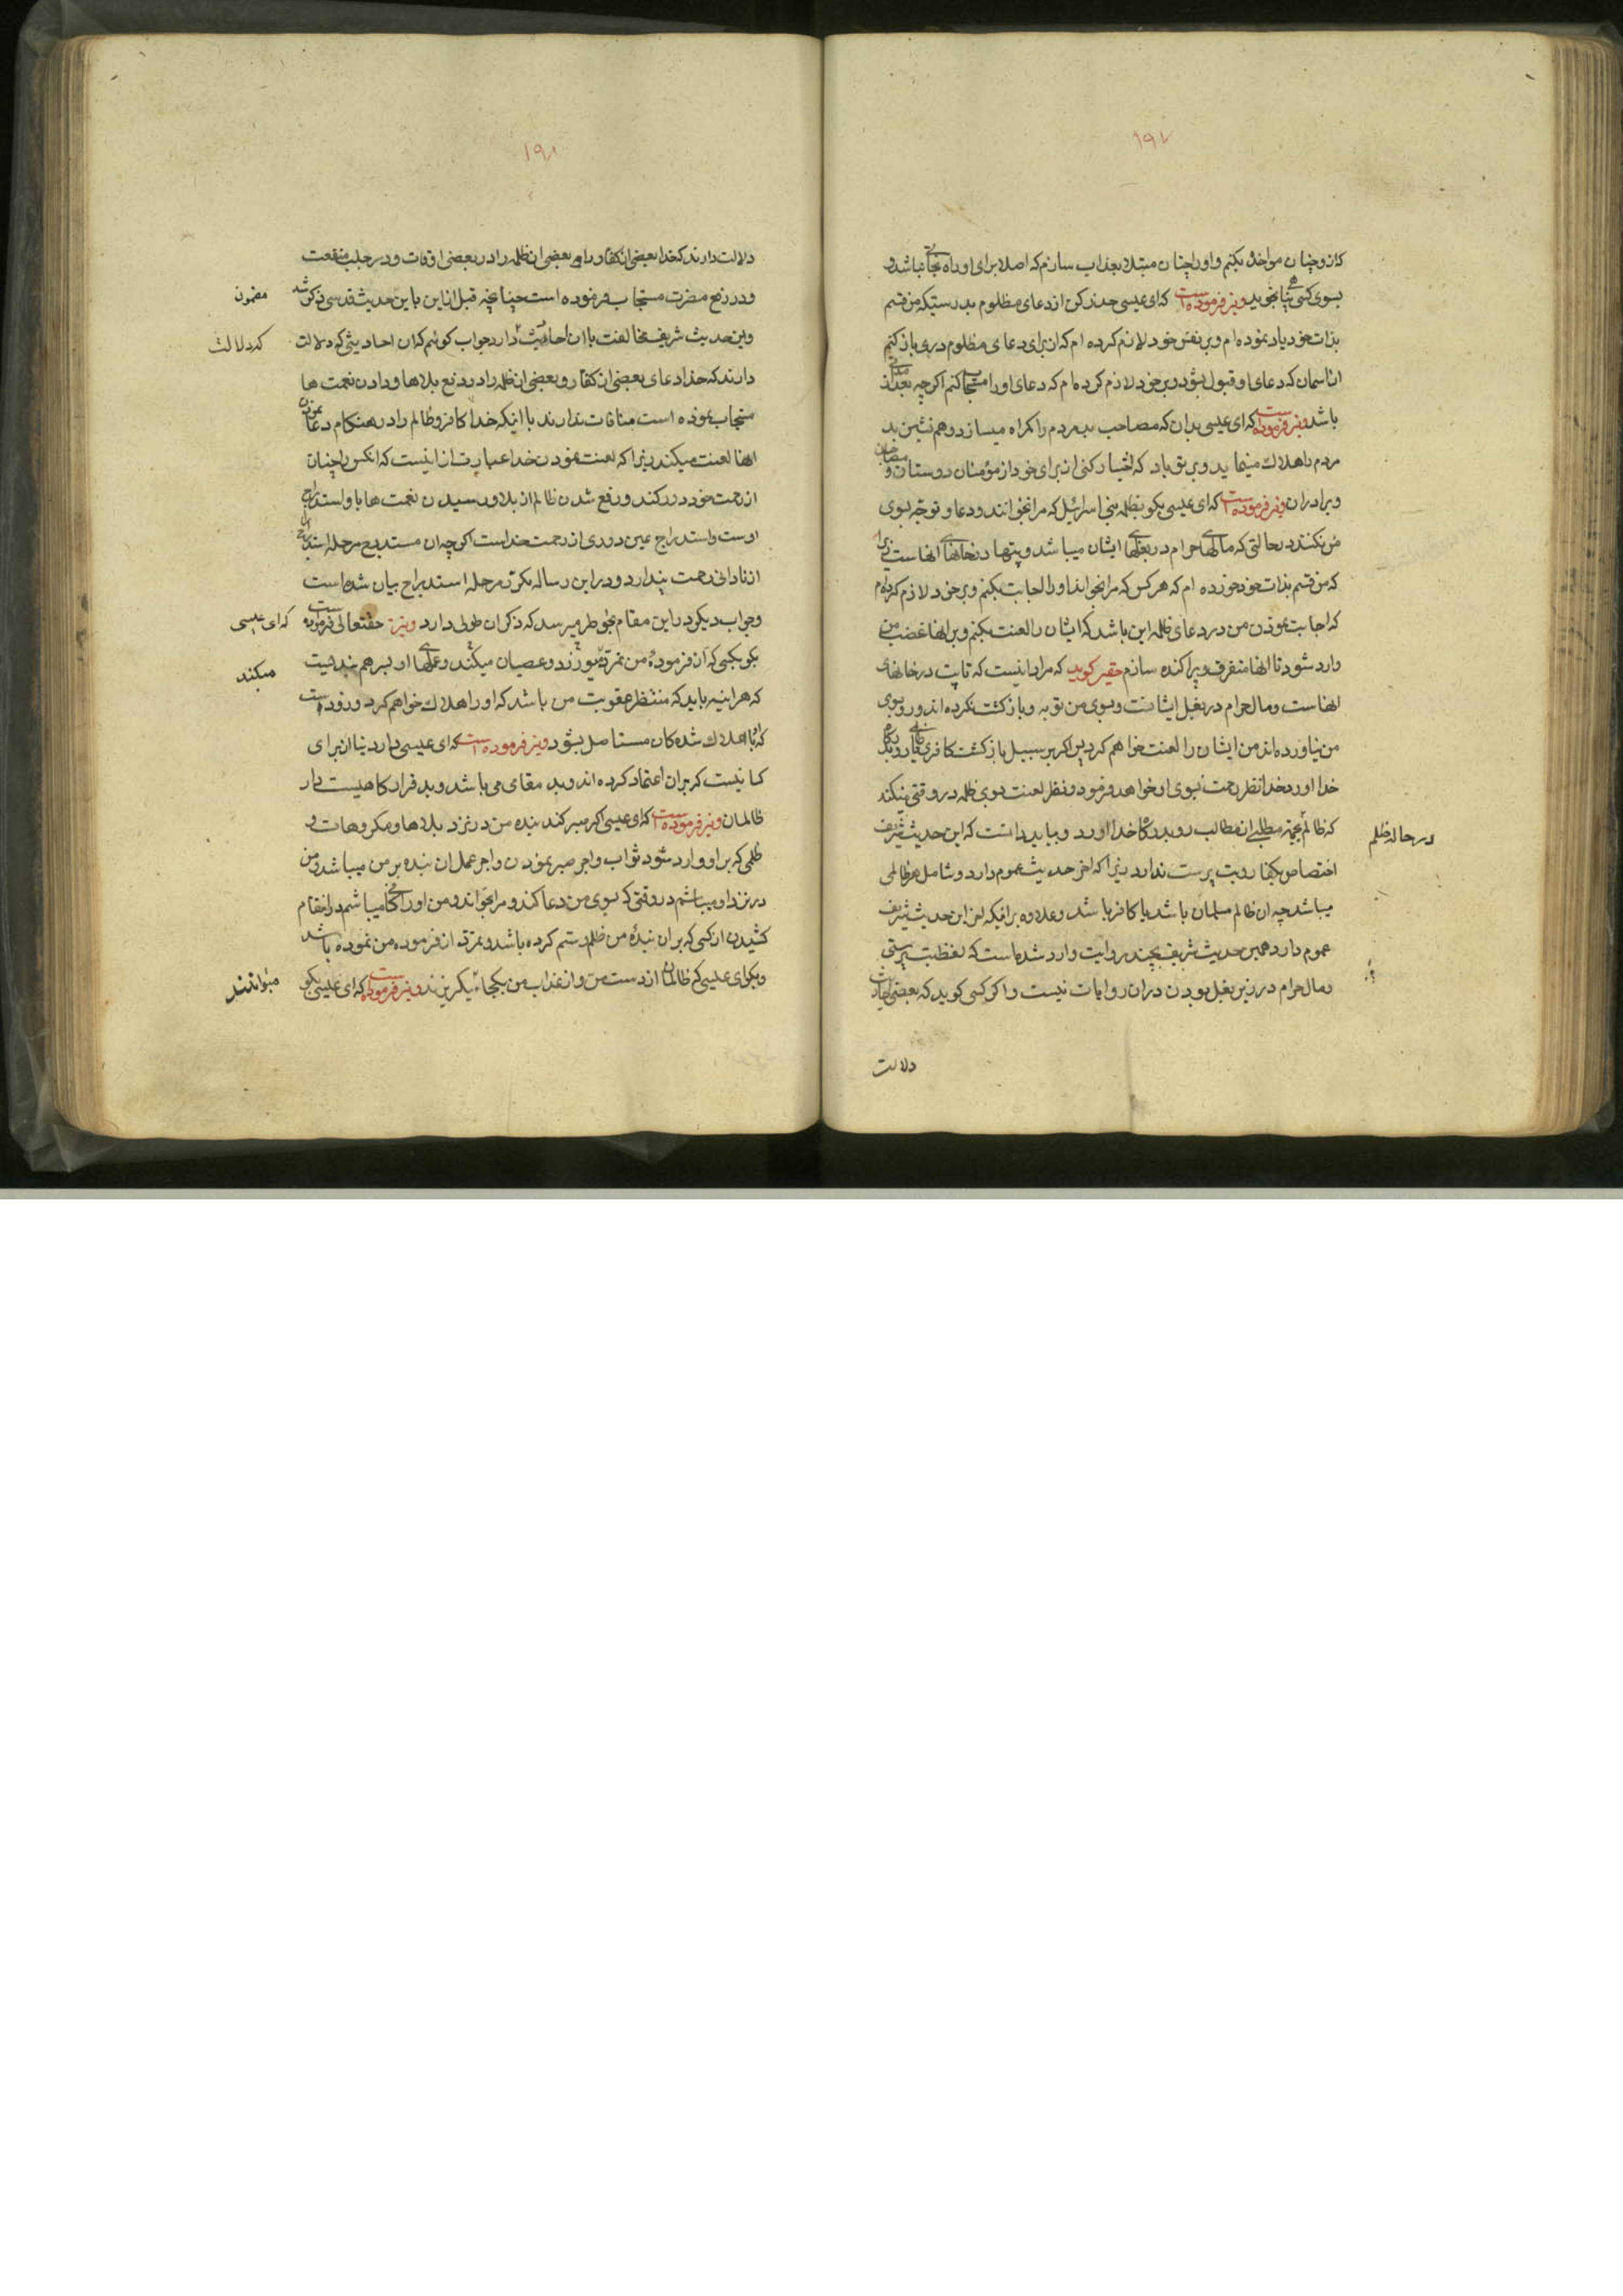 ۱۹۷
که از او چنان مواخذه بکنم و او را چنان مبتلا بعذاب سازم که اصلا برای او راه نجاتی نباشد و
بسوی کسی پناه نجوید ونیز فرموده است که ای عیسی حذر کن از دعای مظلوم بدرستیکه من قسم
بذات خود یاد نموده ام و بر نفس خود لازم کرده ام که از برای دعای مظلوم دری باز کنم
از اسمان که دعای او قبول بشود و بر خود لازم کرده ام که دعای او را مستجاب کنم اگرچه بعد از مدتی
باشد ونیز فرموده است که ای عیسی بدان که مصاحب بد مردم را گمراه میسازد و همنشین بد
مردم را هلاک مینماید و بر تو باد که اختیار کنی از برای خود از مؤمنان دوستان و مصاحبان
و برادران ونیز فرموده است که ای عیسی بکو بظلمه بنی اسرائیل که مرا نخوانند و دعا و توجه بسوی
من نکنند در حالتی که مالهای حرام در بغلهای ایشان میباشد و بتها در خانهای انها است زیرا
که من قسم بذات خود خورده ام که هر کس که مرا بخواند او را اجابت بکنم و بر خود لازم کرده ام
که اجابت نمودن من در دعای ظلمه این باشد که ایشان را لعنت بکنم و بر انها غضب من
وارد شود تا انها متفرق و پراکنده سازم حقیر کوید که مراد اینست که تا بت در خانهای
انها است و مال حرام در بغل ایشانست و بسوی من توبه و باز کشت نکرده اند و رو بسوی
من نیاورده اند من ایشان را لعنت خواهم کرد پس اکر بر سبیل باز کشت کافری یا ظالمی رو بدرکاه
خدا اورد خدا نظر رحمت بسوی او خواهد فرمود و نظر لعنت بسوی ظلمه در وقتی میکند
که ظالم بجهة مطلبی از مطالب رو بدرکاه خدا اورد و بباید دانست که این حدیث شریف
در حالة ظلم
اختصاص بکفار و بت پرست ندارد زیرا که اخر حدیث عموم دارد و شامل هر ظالمی
میباشد چه ان ظالم مسلمان باشد یا کافر باشد و علاوه بر اینکه اخر این حدیث شریف
عموم دارد همین حدیث شریف بچند روایت وارد شده است که لفظ بت پرستی
و مال حرام در زیر بغل بودن در ان روایات نیست و اکر کسی کوید که بعضی احادیث
دلالت
۱۹۸
دلالت دارند که خدا بعضی از کفار را و بعضی از ظلمه را در بعضی اوقات و در جلب منفعت
و در رفع مضرت مستجاب فرموده است چنانچه قبل از این باین حدیث قدسی ذکر شد
مضمون
و این حدیث شریف مخالفت با ان احادیث دارد جواب کوئیم که ان احادیثی که دلالت
که دلالت
دارند که خدا دعای بعضی از کفار و بعضی از ظلمه را در دفع بلاها و دادن نعمت ها
مستجاب نموده است منافات ندارند با اینکه خدا کافر و ظالم را در هنکام دعا نمودن
انها لعنت میکند زیرا که لعنت نمودن خدا عبارت از اینست که انکس را چنان
از رحمت خود دور کند و رفع شدن ظالم از بلا و رسیدن نعمت ها باو استدراج
اوست و استدراج عین دوری از رحمت خداست اکرچه ان مستدرج مرحله استدراج را
از نادانی رحمت پندارد و در این رساله مکرر مرحله استدراج بیان شده است
و جواب دیکر در این مقام بخواطر میرسد که ذکر ان طولی دارد ونیز حقتعالی فرموده است
که ای عیسی
بکو بکسی که از فرموده من تمرد میورزند و عصیان میکنند و عملهای او بر هم بندیت
میکند
که هر اینه باید که منتظر عقوبت من باشد که او را هلاک خواهم کرد و زود است
که با هلاک شده کان مستاصل بشود ونیز فرموده است که ای عیسی دار دنیا از برای
کسانیست که بر ان اعتماد کرده اند و بد مقامی می باشد و بد قرار کاهیست دار
ظالمان ونیز فرموده است که ای عیسی اکر صبر کند بنده من در نزد بلاها و مکروهات و
ظلمی که بر او وارد شود ثواب و اجر صبر نمودن و اجر عمل ان بنده بر من میباشد و من
در نزد او میباشم در وقتی که بسوی من دعا کند و مرا بخواند و من او را کافی میباشم در انتقام
کشیدن از کسی که بر ان بنده من ظلم و ستم کرده باشد و تمرد از فرموده من نموده باشد
و بکو ای عیسی که ظالمان از دست من و از عذاب من بکجا میکریزند ونیز فرموده است که ای عیسی بکو
میتوانند